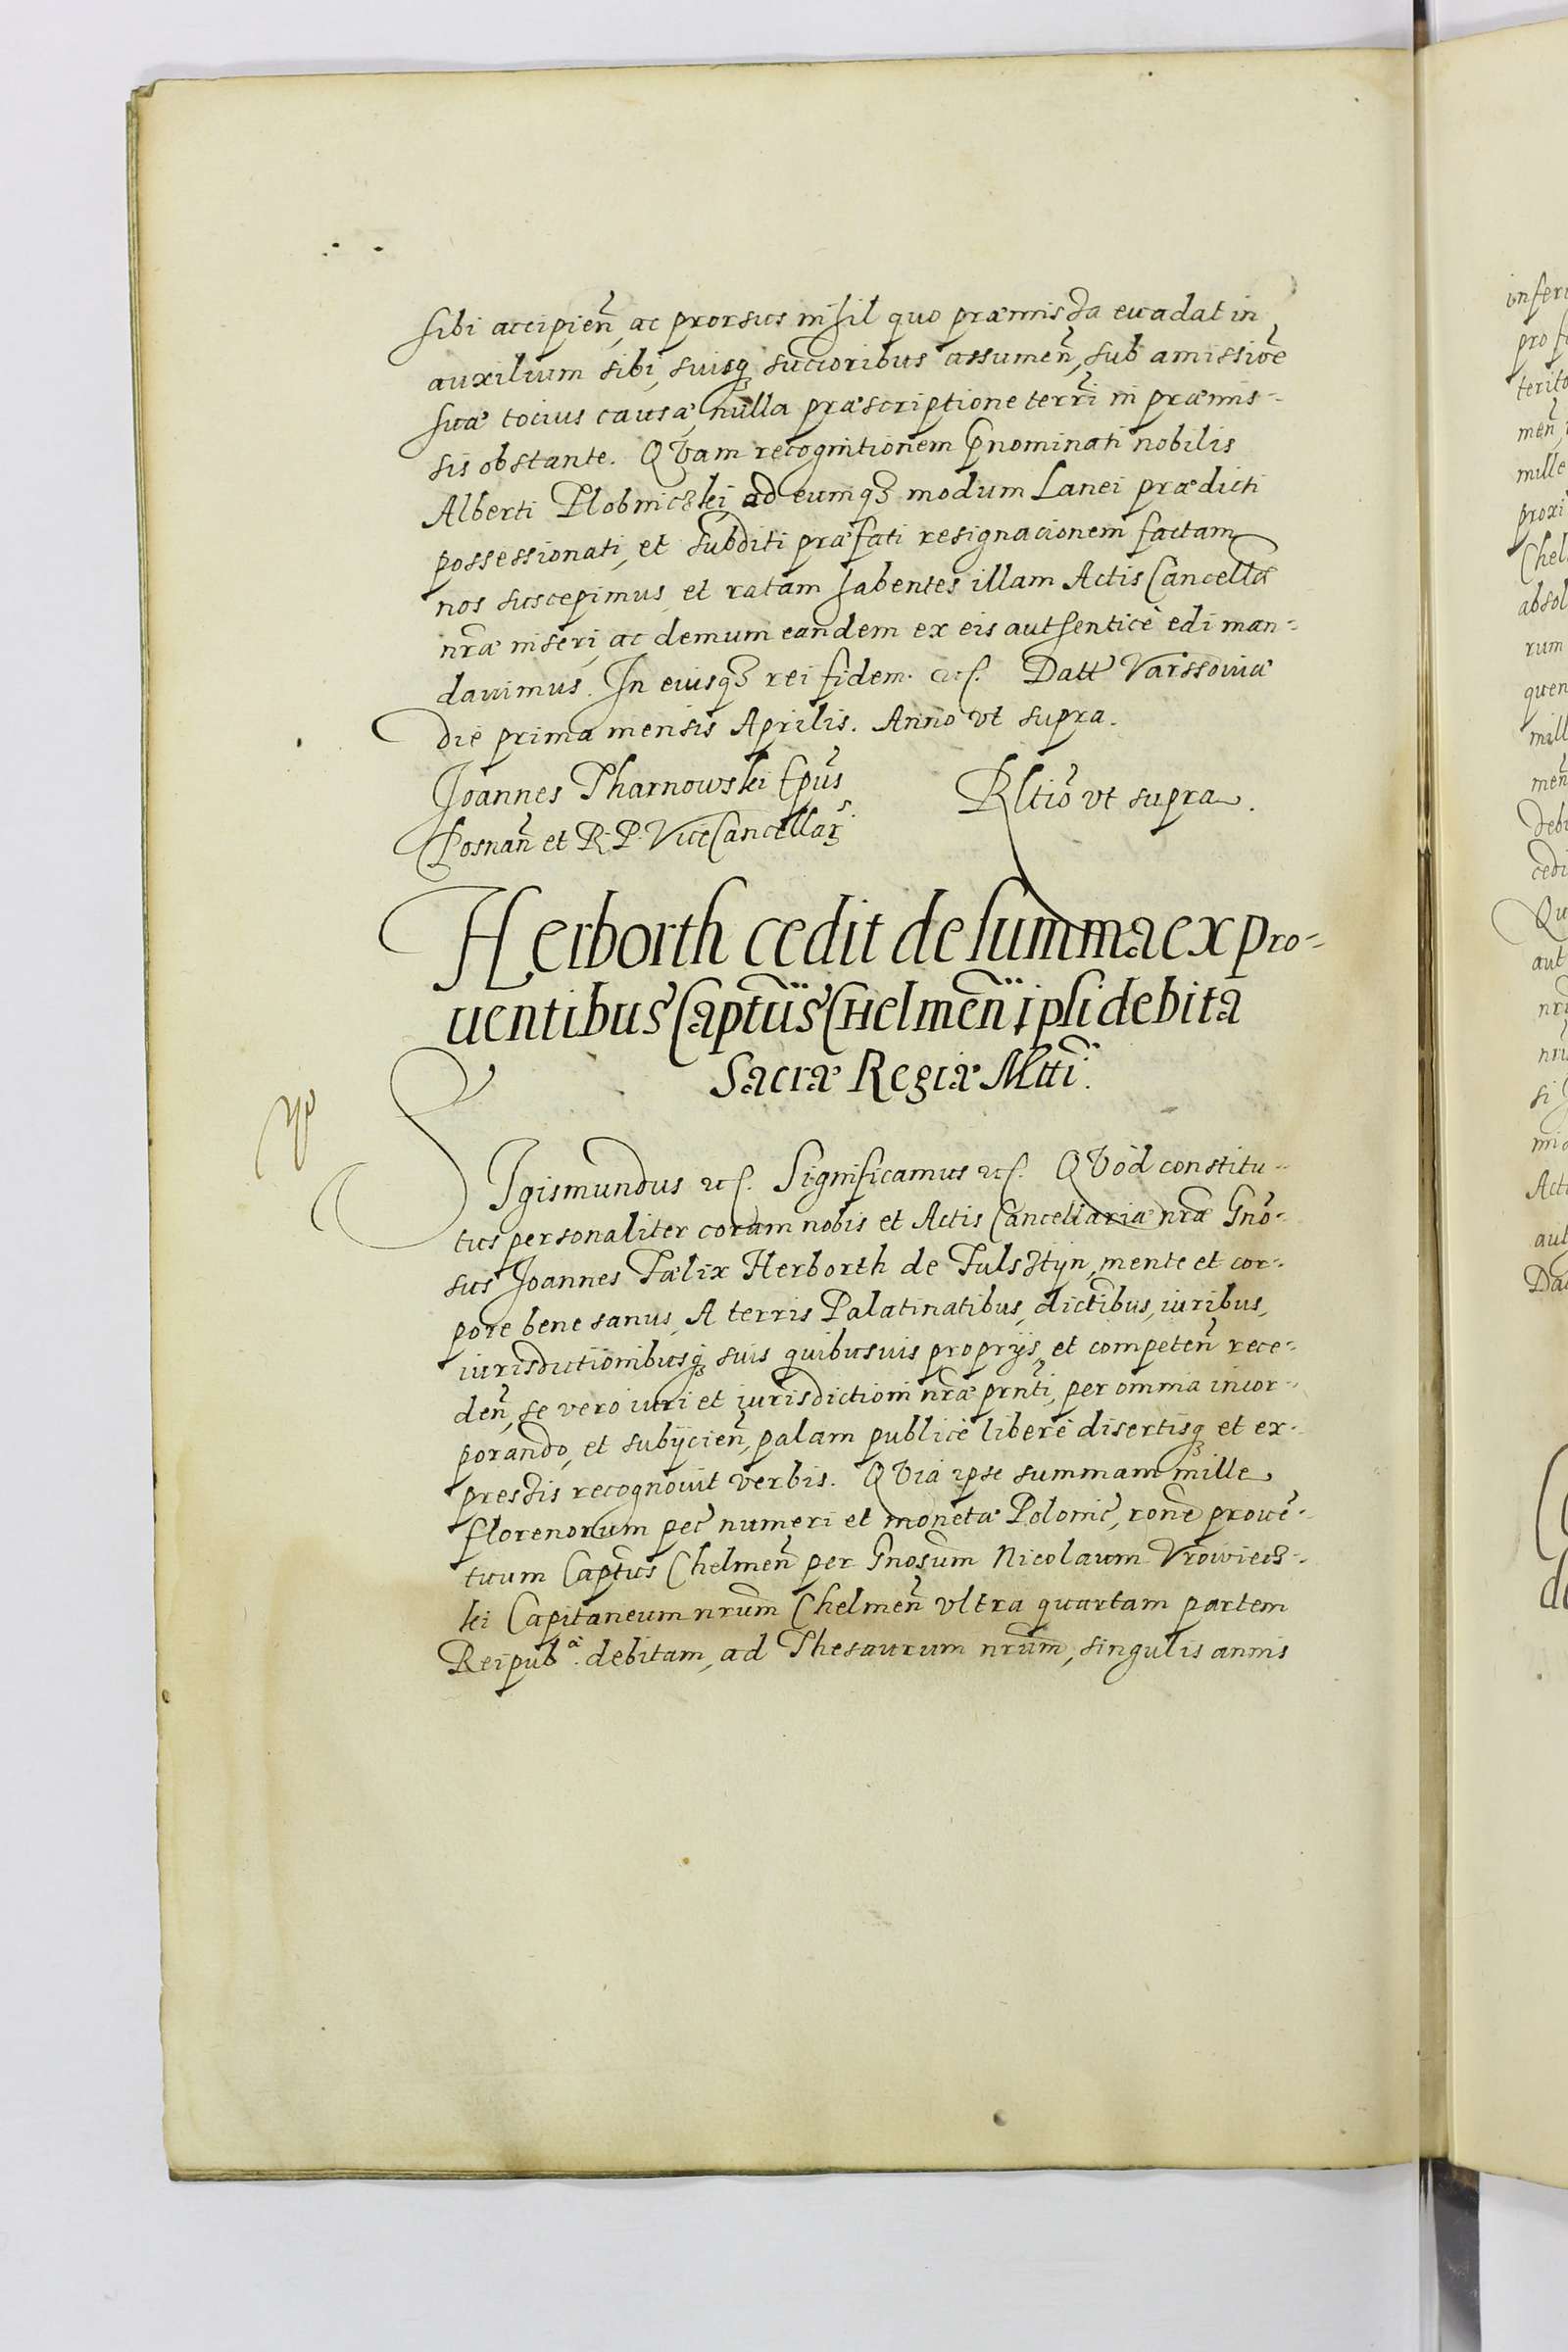 sibi accipień, ac prorsus nihil quo præmissa euadat in
auxilium sibi, suisq₃ succioribus assumeń, sub amissioē
suæ tocius causæ, nulla præscriptione terrī in præmis-
sis obstante. QVam recognitionem Pnominati nobilis
Alberti Plobniczki, ad eumq₃ modum Lanei prædicti
possessionati, et subditi præfati resignacionem factam
nos suscepimus, et ratam habentes illam Actis Cancellæ
nr̃æ inseri, ac demum eandem ex eis authenticè edi man-
dauimus. In cuiusq₃ rei fidem. etc. Datt Varssouiæ
die prima mensis Aprilis. Anno vt supra.
Joannes Tharnowski Ep̃us
Posnań et R. P. ViceCancellar̃
Rltio vt supra.
Herborth cedit de summa ex pro-
uentibus Captũis Chelmeń ipsi debita
Sacræ Regiæ Mtti.
SIgismundus etc. Significamus etc. QVòd constitu-
tus personaliter coram nobis et Actis Cancellariæ nr̃æ Gño-
sus Joannes Fælix Herborth de Fulsztijn, mente et cor-
pore bene sanus, A terris Palatinatibus, dictĩbus, iuribus,
iurisdictionibusq₃ suis quibusuis proprijs, et competeń rece-
deń, se vero iuri et iurisdictioni nr̃æ prñti, per omnia incor-
porando, et subijcień, palam publicè liberè disertisq₃ et ex-
pressis recognouit verbis. QVia ipse summam mille
florenorum pec̃ numeri et monetæ Polonic̃, roñe prouẽ-
tuum Captũs Chelmeń per Gñosum Nicolaum Vrowiecz-
ki Capitaneum nr̃um Chelmeń vltra quartam partem
Reipub.ᵃ debitam, ad Thesaurum nr̃um, singulis annis